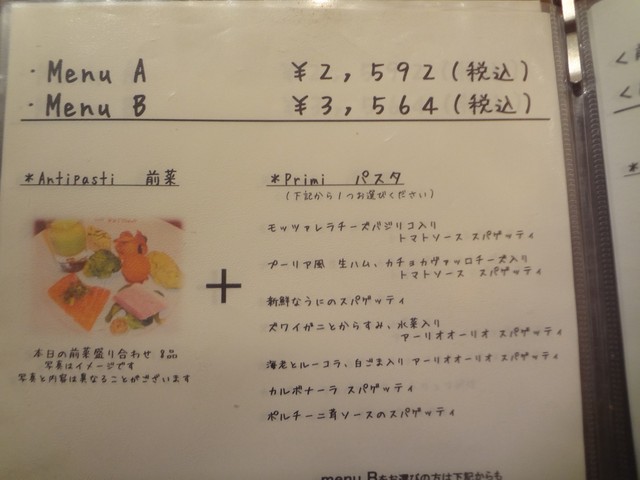 ・Menu A ¥2,592(税込)
・Menu B ¥3,564(税込)
*Antipasti 前菜
本日の前菜盛り合わせ 8品
写真はイメージです
写真と内容は異なることがございます
+
*Primi パスタ
(下記から1つお選びください)
モッツァレラチーズバジリコ入り
トマトソース スパゲッティ
プーリア風 生ハム、カチョカヴァッロチーズ入り
トマトソース スパゲッティ
新鮮なうにのスパゲッティ
ズワイガニとからすみ、水菜入り
アーリオオーリオ スパゲッティ
海老とルーコラ、白ごま入り アーリオオーリオ スパゲッティ
カルボナーラ スパゲッティ
ポルチーニ茸ソースのスパゲッティ
menu Bをお選びの方は下記からも